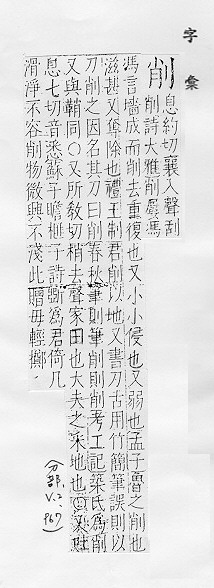 字彙
削
息約切襄入聲刮
削詩大雅削屢馮
馮言墻成而削去重復也又小小侵也又弱也孟子魯之削也
滋甚又奪除也禮王制君削以地又書刀古用竹簡筆誤則以
刀削之因名其刀曰削春秋筆則筆削則削考工記築氏為削
又與鞘同○又所敎切稍去聲家田也大夫之采地也○又叶
息七切音悉蘇子瞻榧子詩斲為君倚几
滑淨不容削物微興不淺此贈毋輕擲
(分部 V.2. 967)